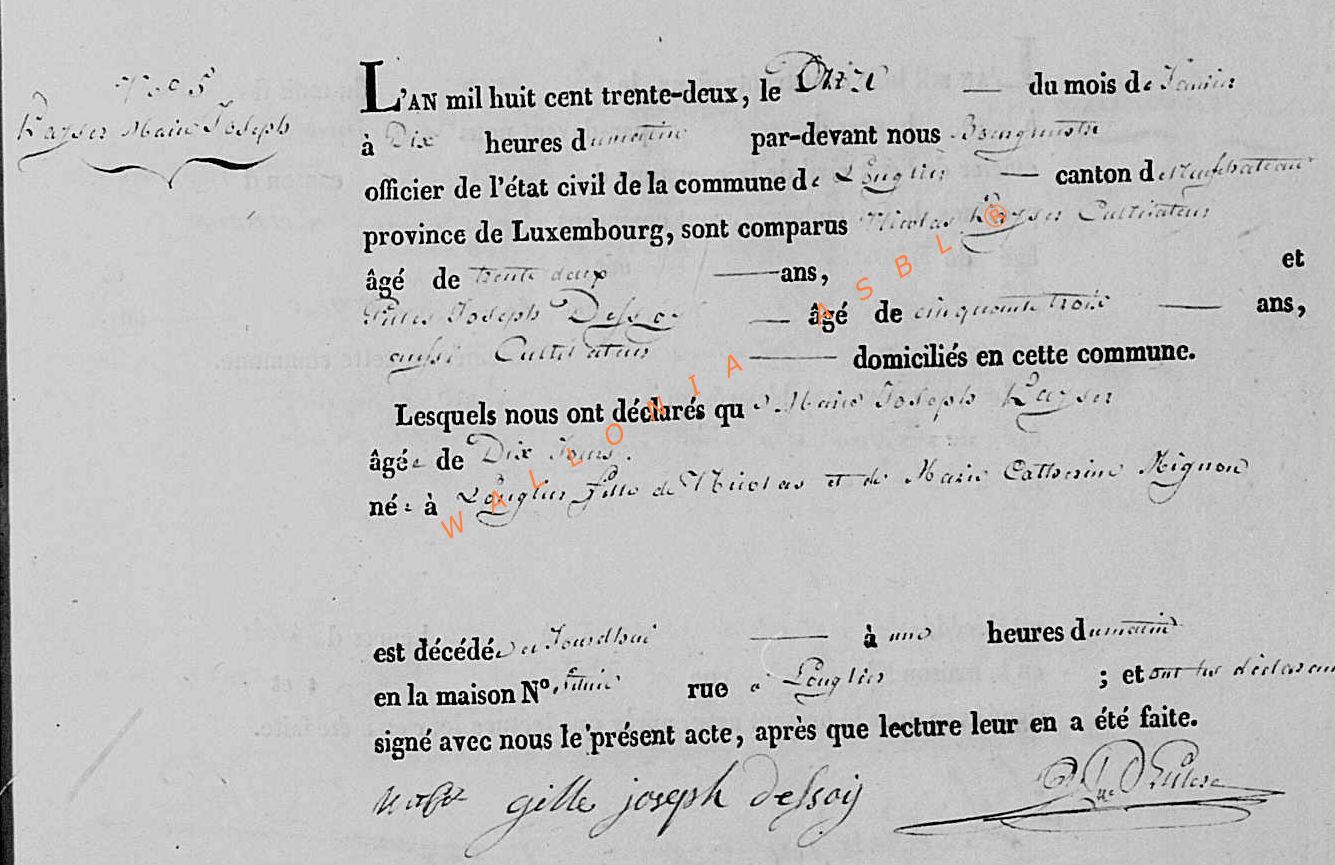 N° 5
Kayser Marie Joseph
L'AN mil huit cent trente-deux, le Onze du mois de Janvier
à Dix heures du matin par-devant nous Bourgmestre
officier de l'état civil de la commune de Longlier canton de Neufchateau
province de Luxembourg, sont comparus Nicolas Kayser Cultivateur
âgé de trente deux ans, et
Gilles Joseph Dessoy âgé de cinquante trois ans,
aussi Cultivateur domiciliés en cette commune.
Lesquels nous ont déclarés que Marie Joseph Kayser
âgée de Dix Jours.
née à Longlier fille de Nicolas et de Marie Catherine Mignon
est décédée Jourdhui à une heures du matin
en la maison N°. rue a Longlier ; et ont les déclarans
signé avec nous le présent acte, après que lecture leur en a été faite.
gille joseph dessoy
WALLONIA ASBL ®